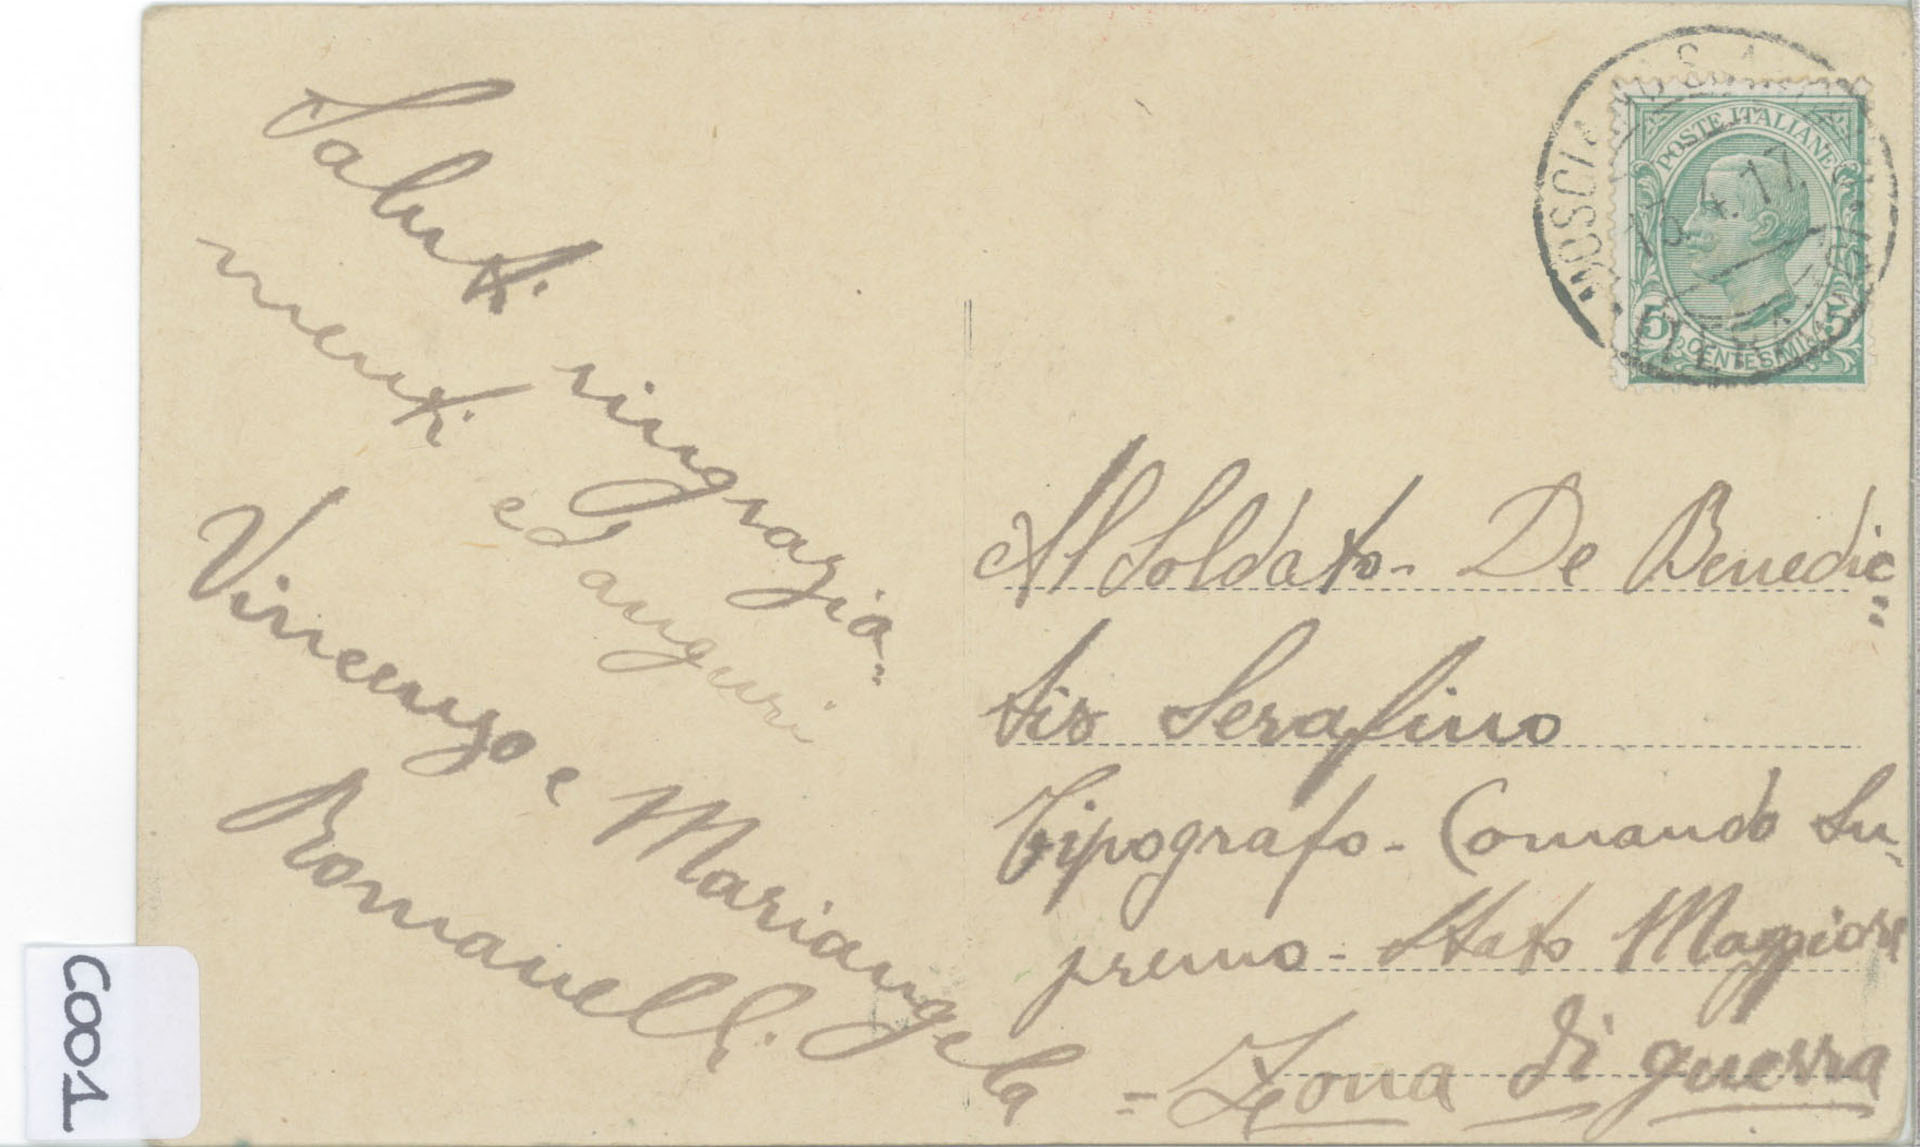 Saluti ringrazia=
menti ed auguri
Vincenzo e Mariangela
Romanelli
POSTE ITALIANE
15.4.17
5 CENTESIMI 5
Al Soldato - De Benedic=
tis Serafino
Tipografo - Comando Su-
premo - Stato Maggiore
= Zona di guerra
C001